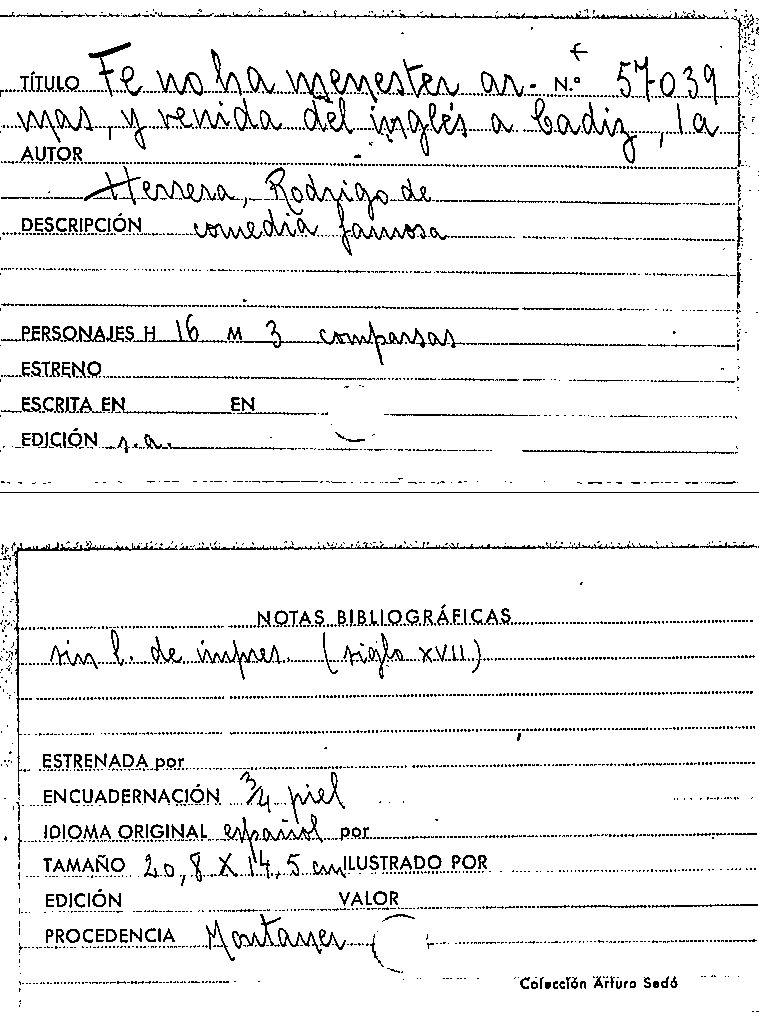 TÍTULO Fe no ha menester ar- N.º 57039
mas, y venida del inglés a Cadiz, la
AUTOR
Herrera, Rodrigo de
DESCRIPCIÓN comedia famosa
PERSONAJES H 16 M 3 comparsas
ESTRENO
ESCRITA EN EN
EDICIÓN s.a.
NOTAS BIBLIOGRÁFICAS
sin l. de impres. (siglo XVII)
ESTRENADA por
ENCUADERNACIÓN 3/4 piel
IDIOMA ORIGINAL español por
TAMAÑO 20,8 X 14,5 cm ILUSTRADO POR
EDICIÓN VALOR
PROCEDENCIA Montaner
Colección Arturo Sedó